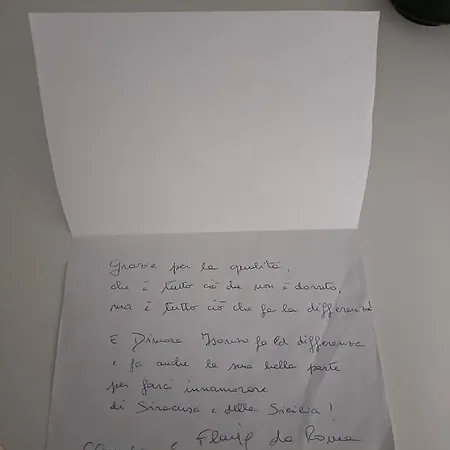 Grazie per la qualità,
che è tutto ciò che non è dovuto,
ma è tutto ciò che fa la differenza!
E Dimora fa la differenza
e fa anche la sua bella parte
per farci innamorare
di Siracusa e della Sicilia!
da Roma